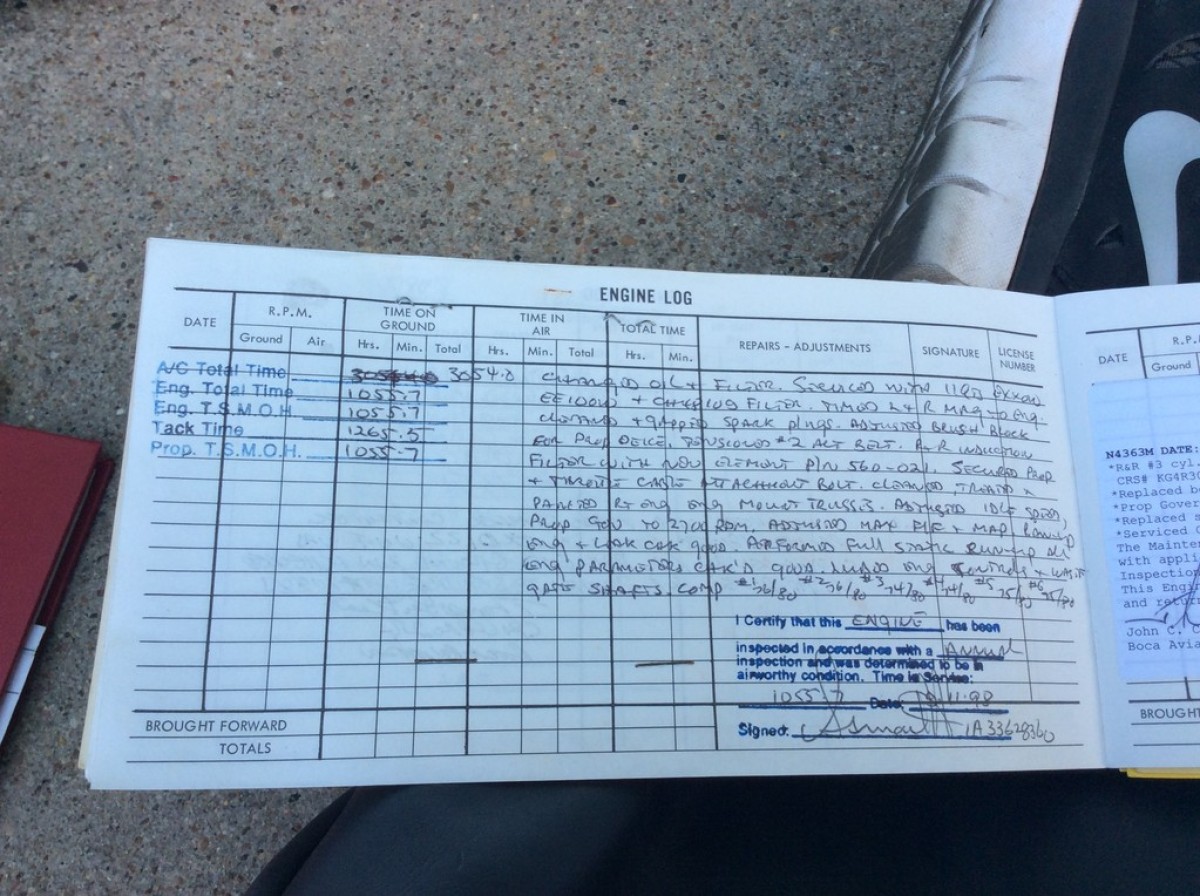 ENGINE LOG
DATE R.P.M. TIME ON GROUND TIME IN AIR TOTAL TIME REPAIRS - ADJUSTMENTS SIGNATURE LICENSE NUMBER
Ground Air Hrs. Min. Total Hrs. Min. Total Hrs. Min.
A/C Total Time 3054.0 CHANGED OIL + FILTER. SERVICED WITH 11QTS EXXON
Eng. Total Time 1055.7 EE100W + CH48109 FILTER. TIMED L+R MAG TO ENG.
Eng. T.S.M.O.H. 1055.7 CLEANED + GAPPED SPARK PLUGS. ADJUSTED BRUSH BLOCK
Tack Time 1265.5 FOR PROP DEICE. TENSIONED #2 ALT BELT. R+R INDUCTION
Prop. T.S.M.O.H. 1055.7 FILTER WITH NEW ELEMENT P/N 560-021. SECURED PROP
+ THROTTLE CABLE ATTACHMENT BOLT. CLEANED, TREATED +
PAINTED RT ENG ENG MOUNT TRUSSES. ADJUSTED IDLE SPEED,
PROP GOV TO 2700 RPM, ADJUSTED MAX F/F + MAP.
ENG + LEAK CHK GOOD. PERFORMED FULL STATIC RUN-UP ALL
ENG PARAMETERS CHK'D GOOD. LUBED ENG CONTROLS + WASTE
GATE SHAFTS. COMP #1 76/80 #2 76/80 #3 74/80 #4 74/80 #5 75/80 #6 75/80
I Certify that this ENGINE has been
inspected in accordance with a ANNUAL
inspection and was determined to be in
airworthy condition. Time in Service:
1055.7 Date: 11-98
Signed: IA 33628360
BROUGHT FORWARD
TOTALS
DATE R.P.
Ground
N4363M DATE:
*R&R #3 cyl.
CRS# KG4R30
*Replaced b
*Prop Gover
*Replaced s
*Serviced
The Mainte
with appli
Inspection
This Engi
and retu
John C. C
Boca Avia
BROUGHT